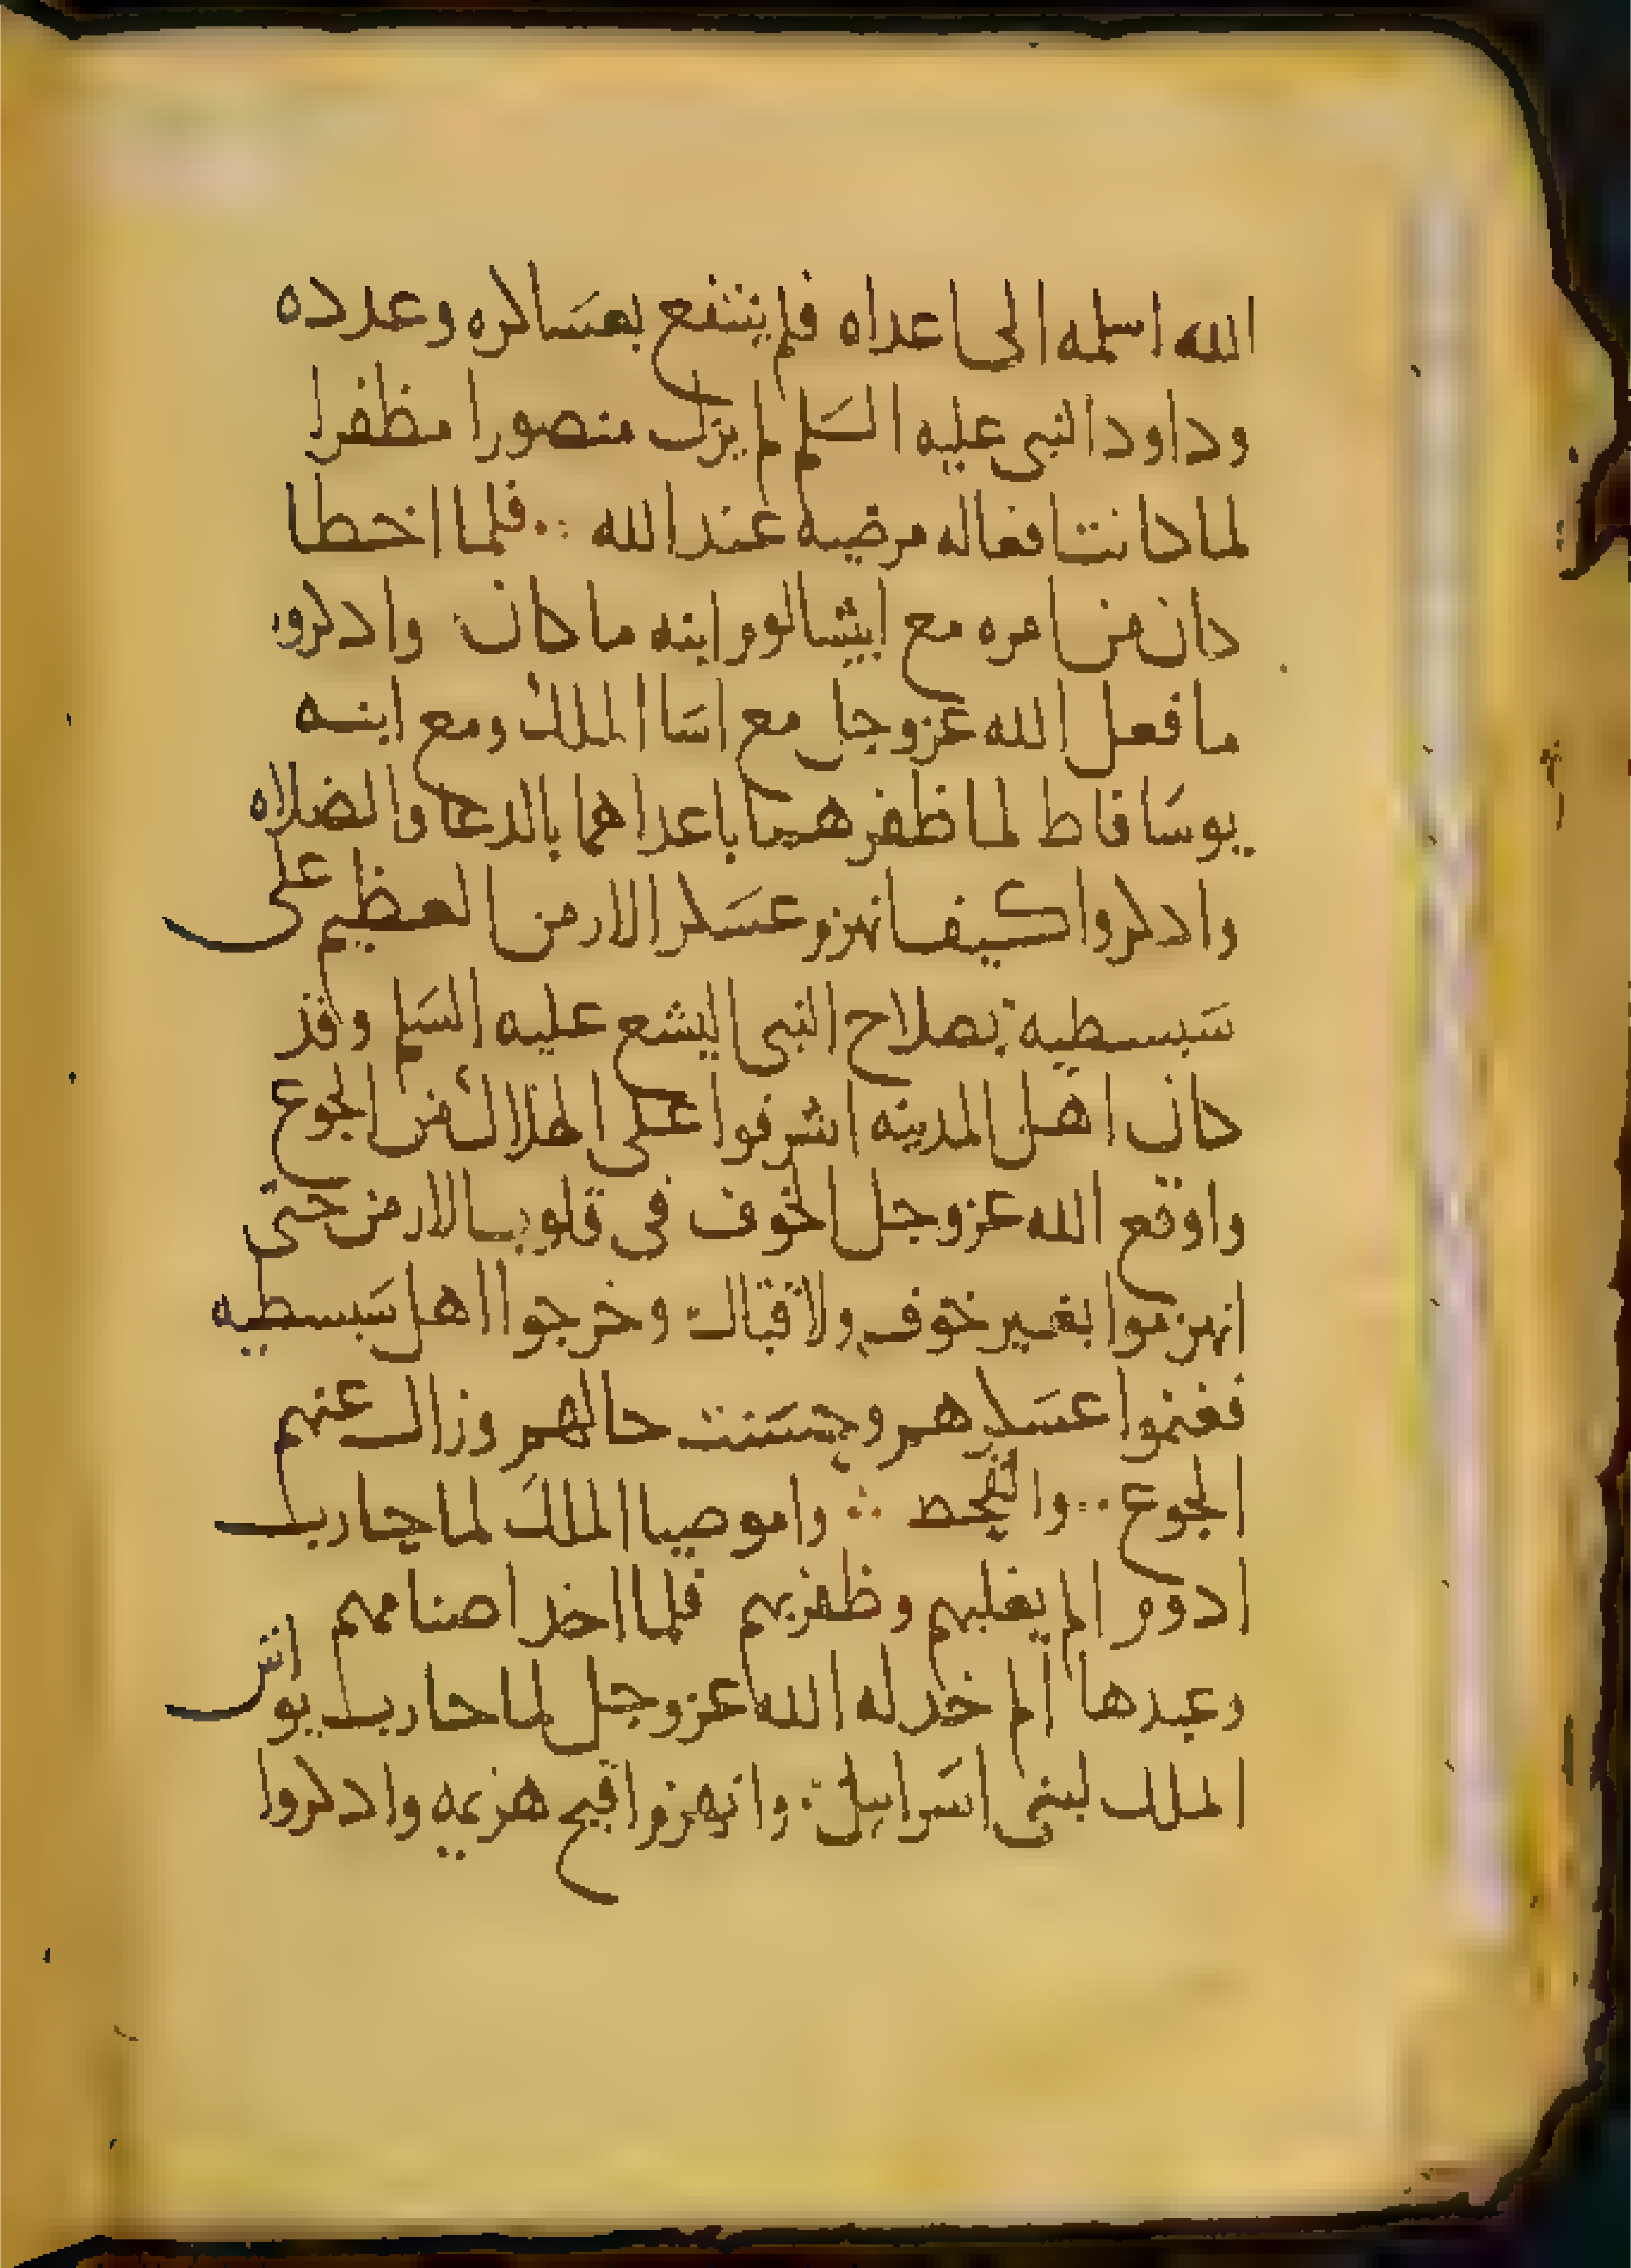 الله اسلمه الى اعداه فلم ينتفع بعساكره وعدده
وداود النبى عليه السلم لم يزل منصورا مظفرا
لما كانت افعاله مرضيه عند الله ⁘ فلما اخطا
كان من امره مع ابيشالوم ابنه ما كان وادكروا
ما فعل الله عز وجل مع اسا الملك ومع ابنه
يوسافاط لما ظفرهما باعداهما بالدعا والصلاه
وادكروا كيف انهزم عسكر الارمن العظيم على
سبسطيه بصلاح النبى اليشع عليه السلم وقد
كان اهل المدينه اشرفوا على الهلاك من الجوع
واوقع الله عز وجل الخوف فى قلوب الارمن حتى
انهزموا بغير خوف ولا قتال وخرجوا اهل سبسطيه
فغنموا عسكرهم وحسنت حالهم وزال عنهم
الجوع ⁘ والقحط ⁘ واموصيا الملك لما حارب
ادوم الم يغلبهم وظفر بهم فلما اخد اصنامهم
وعبدها الم خدله الله عز وجل لما حارب يواش
الملك لبنى اسراييل ⁘ وانهزم اقبح هزيمه وادكروا